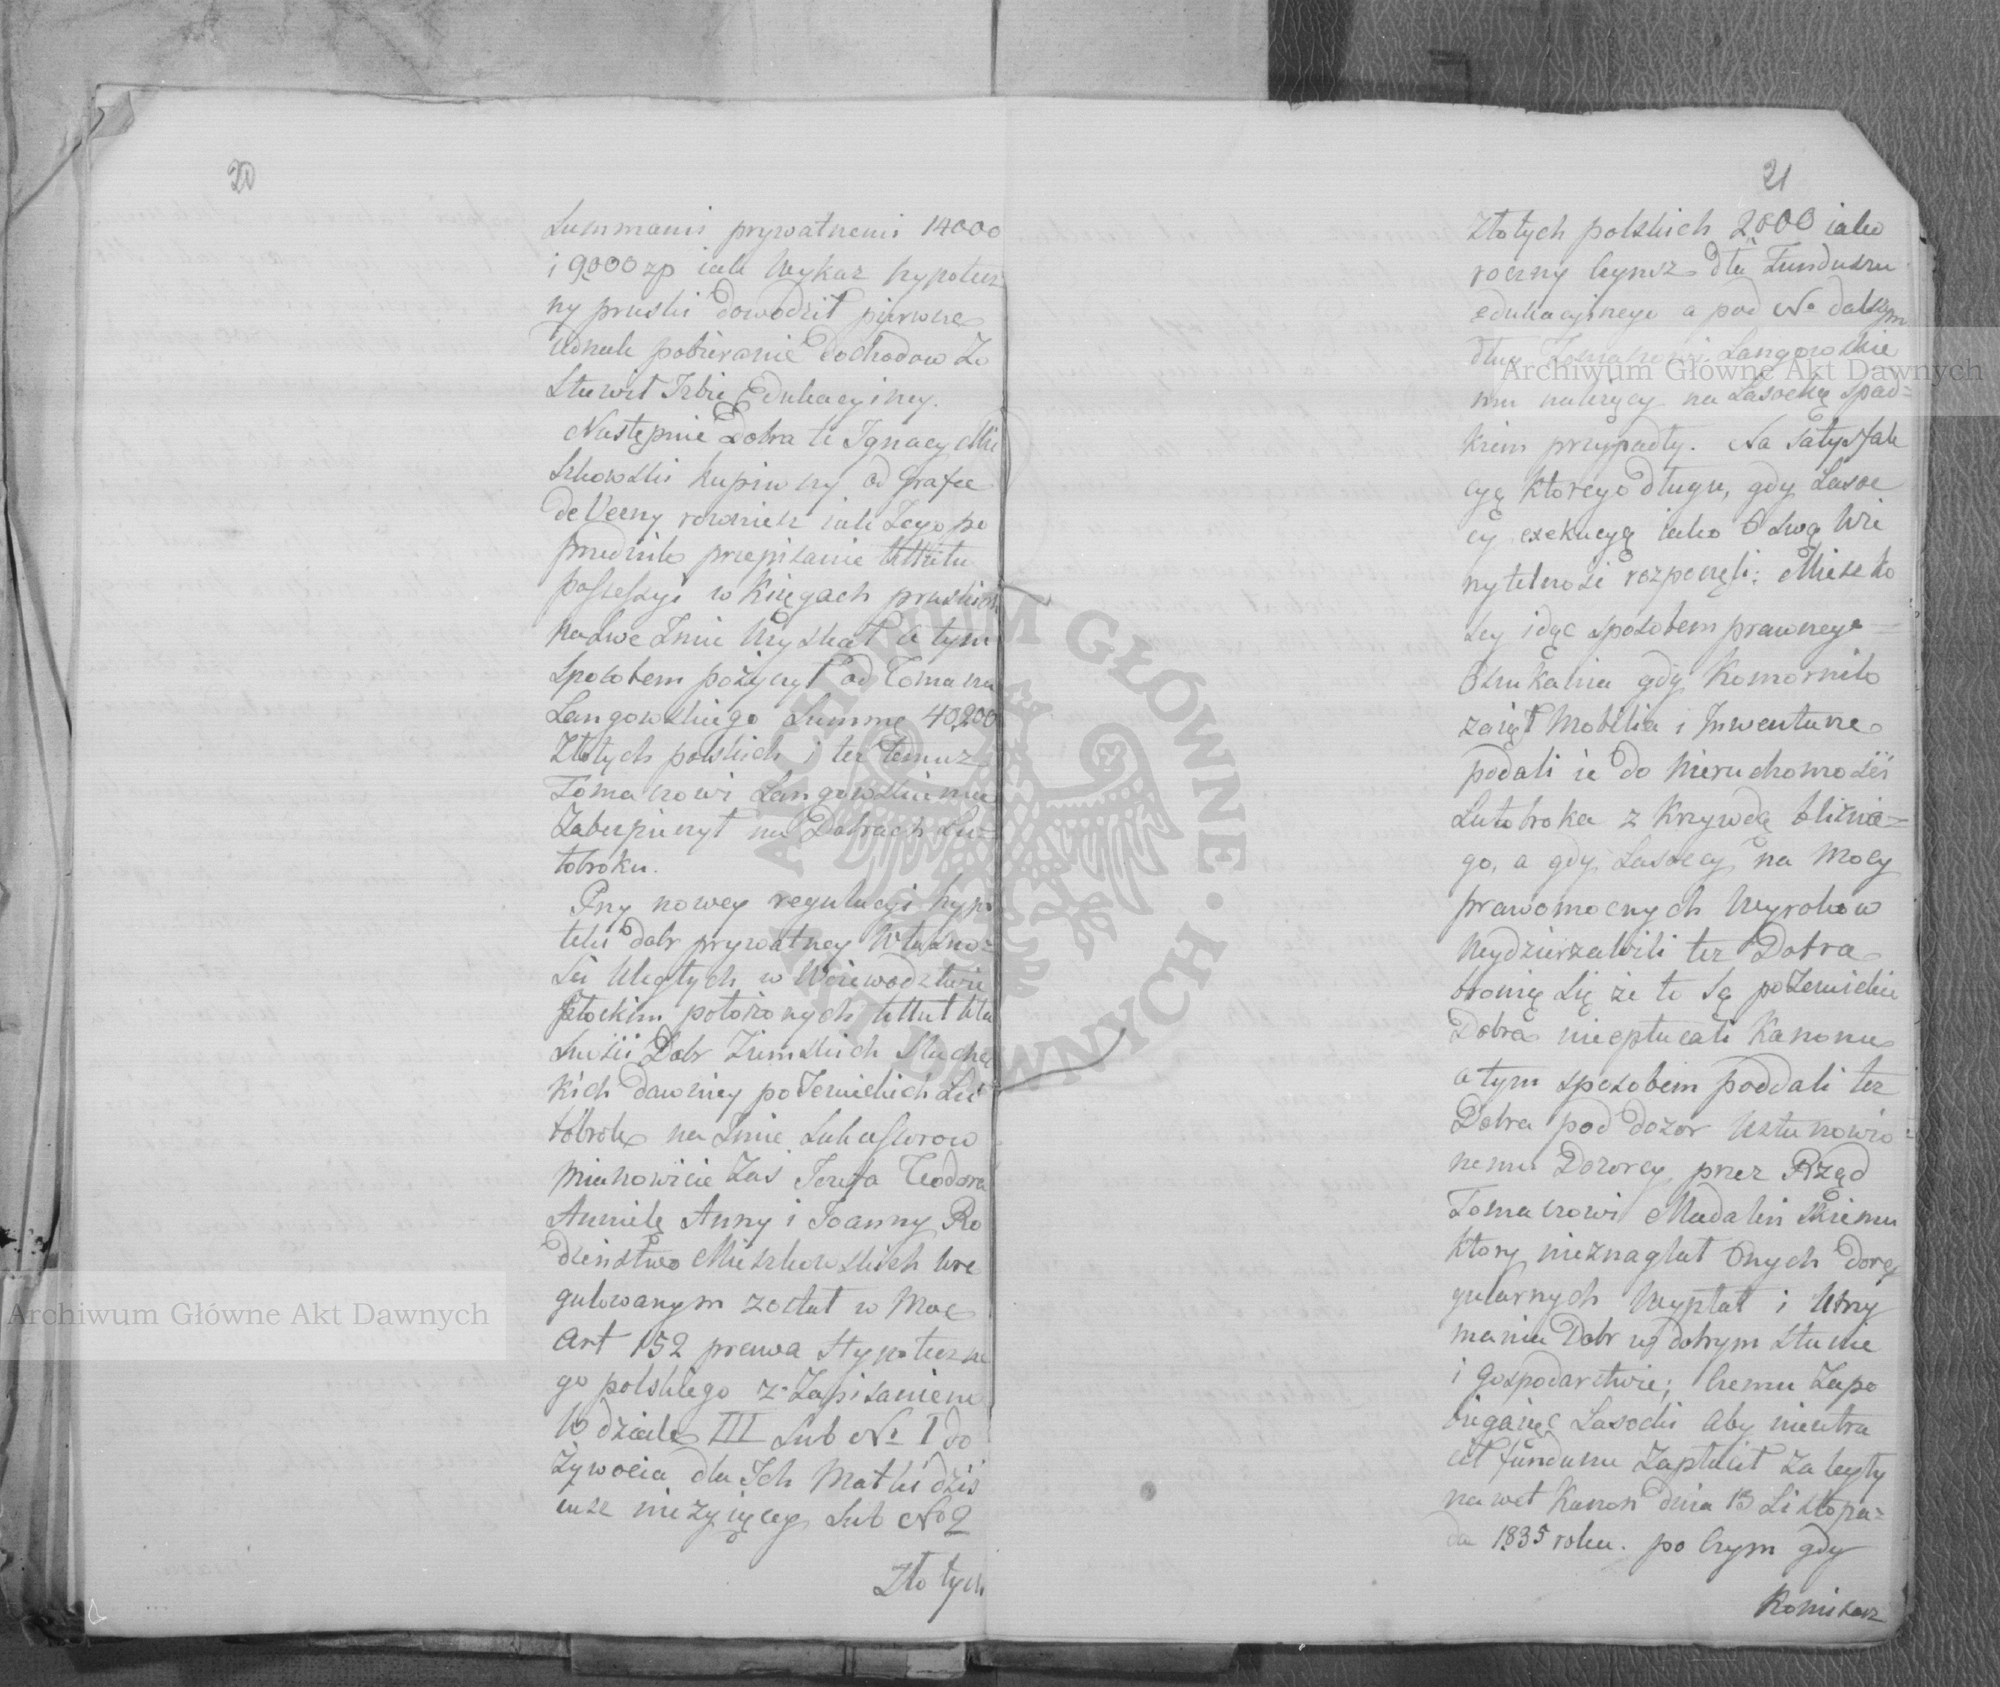 20
Summami prywatnemi 14000
i 9000 zp iak Wykaz hypotecz
ny pruski dowodził pierwsze
iednak pobieranie dochodow Zo
stawił Izbie Edukacyiney.
Następnie Dobra te Ignacy Mie
szkowski kupiwszy od Grafa
de Verny rownież iak Jego po
przednik przepisanie tittułu
possessyi w Księgach pruskich
na swe Imie Uzyskał a tym
sposobem pożyczył od Tomasza
Langowskiego summę 40,200
Złotych polskich i też temuz
Tomaszowi Langowskiemu
Zabespieczył na Dobrach Lu-
tobroku.
Przy nowey regulacyi hypo
teki dobr prywatney Własno-
ści Uległych w Woiewodztwie
Płockim położonych tittuł Wła
sności Dobr Ziemskich Szlache
kich dawniey poJezuickich Lu
tobrok na Imie Sukcessorow
mianowicie Zaś Jozefa Teodora
Anielę Anny i Joanny Ro
dzeństwo Mieszkowskich Ure
gulowanym został w Moc
Art 152 prawa Hypoteczne
go polskiego z Zapisaniem
W dziale III Sub No 1 do
Żywocia dla Ich Matki dziś
iusz nieżyiącey Sub No 2
Złotych
21
Złotych polskich 2000 iako
roczny Czynsz dla Funduszu
edukacyinego a pod No dalszym
dług Tomaszowi Langowskie
mu należący na Lasockę spad-
kiem przypadły. Na satysfak
cyą ktorego długu, gdy Lasoc
cy exekucyą iako o swą Wie
rytelność rozpoczęli; Mieszko
scy idąc sposobem prawnego
Oszukania gdy Komornik
zaiął Mobilia i Inwentarze
podali ie do Nieruchomości
Lutobroka z Krzywdą bliźnie-
go, a gdy Lassocy na Mocy
prawomocnych Wyrokow
Wydzierzawili też Dobra
bronię się że to są poJezuickie
Dobra niepłucali Kanonu
a tym sposobem poddali też
Dobra pod dozor Ustanowio-
nemu Dozorcy przez Rząd
Tomaszowi Madalińskiemu
ktory nieznaglał Onych do re
gularnych Wypłat i Utrzy
mania Dobr w dobrym stanie
i Gospodarstwie; Czemu Zapo
biegaiąc Lasocki aby nieutra
cił funduszu Zapłacił Zaległy
nawet Kanon dnia 13 Listopa-
da 1835 roku. po Czym gdy
Komisarz
ARCHIWUM GŁÓWNE · AKT DAWNYCH ·
Archiwum Główne Akt Dawnych
Archiwum Główne Akt Dawnych